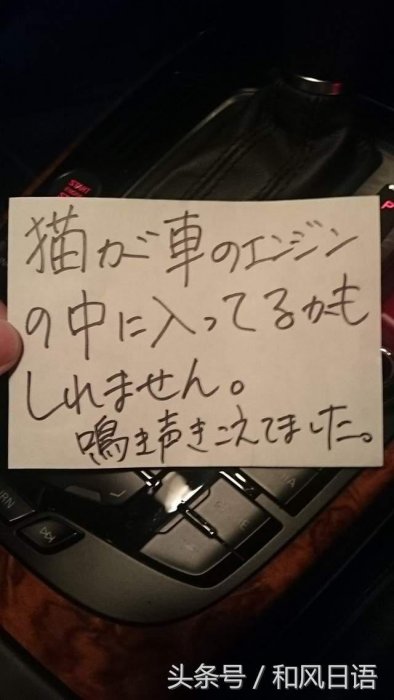 猫が車のエンジン
の中に入ってるかも
しれません。
鳴き声きこえてました。
START
头条号 / 和风日语